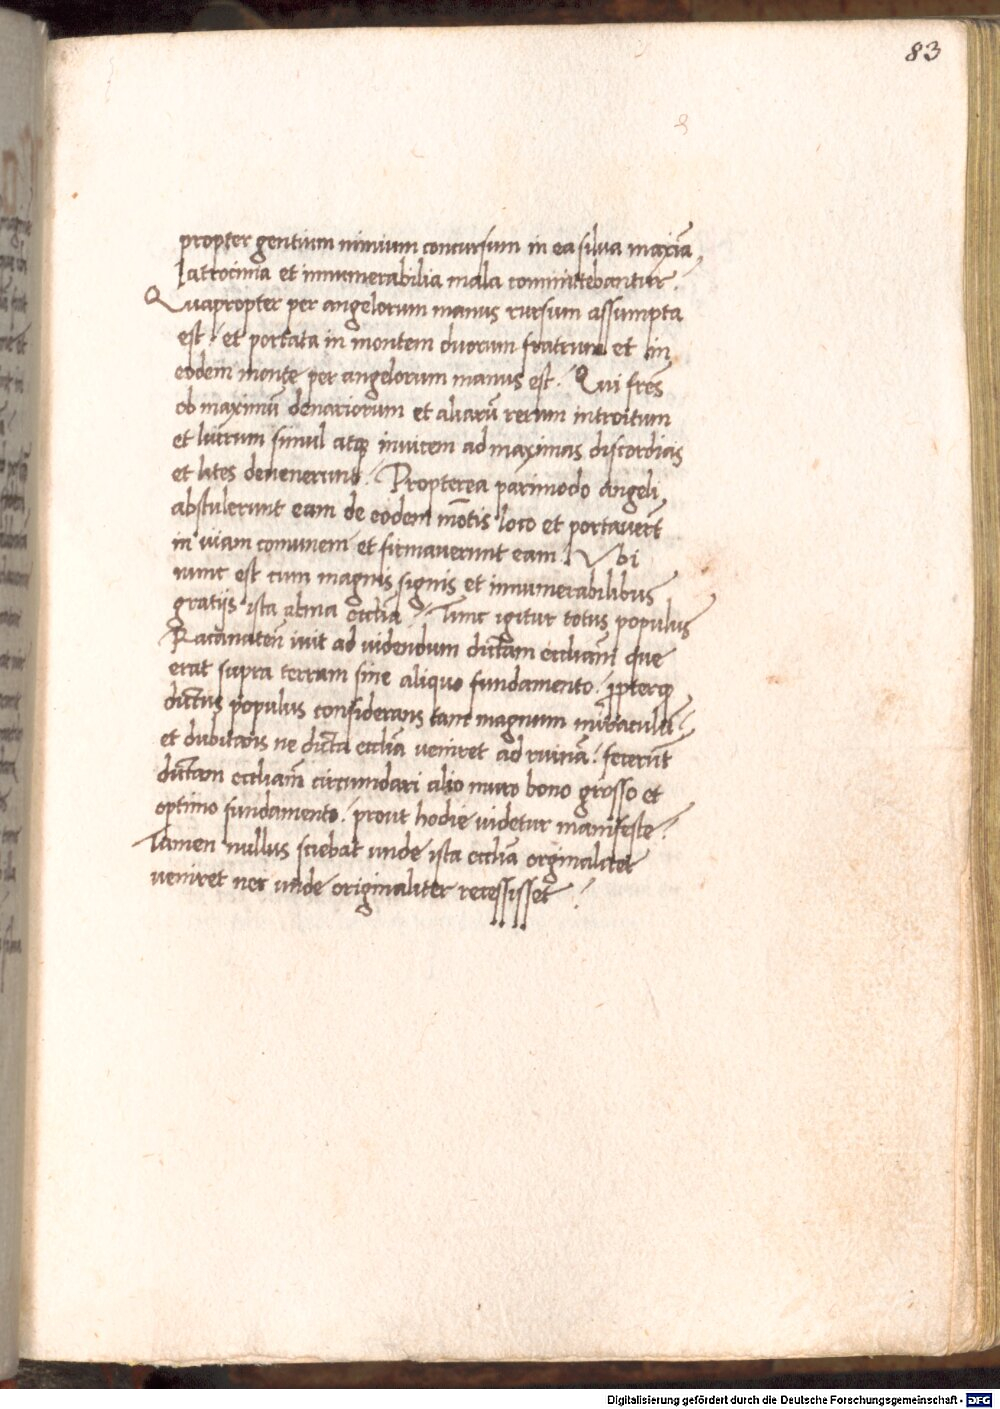 83
propter gentium nimium concursum in ea silva maxĩa
latrocinia et innumerabilia mala committebantur.
Quapropter per angelorum manus rursum assumpta
est / et portata in montem duorum fratrum et in
eodem monte per angelorum manus est. Qui frẽs
ob maximũ denariorum et aliarũ rerum introitum
et lucrum simul atq invicem ad maximas discordias
et lites devenerunt. Propterea parimodo angeli
abstulerunt eam de eodem mõtis loco et portaverũt
in viam comunem et firmaverunt eam. Vbi
nunc est cum magnis signis et innumerabilibus
gratijs ista alma ecclĩa / Tunc igitur totus populus
Racanateñ ivit ad videndum dictam eccliam̃ que
erat supra terram sine aliquo fundamento. ipterq
dictus populus considerans tam magnum miraculũ /
et dubitans ne dicta ecclĩa veniret ad ruinã. fecerũt
dictam eccliam̃ circumdari alio muro bono grosso et
optimo fundamento. prout hodie videtur manifeste /
Tamen nullus sciebat unde ista ecclĩa orginaliter
veniret nec unde originaliter recessisset /
Digitalisierung gefördert durch die Deutsche Forschungsgemeinschaft - DFG